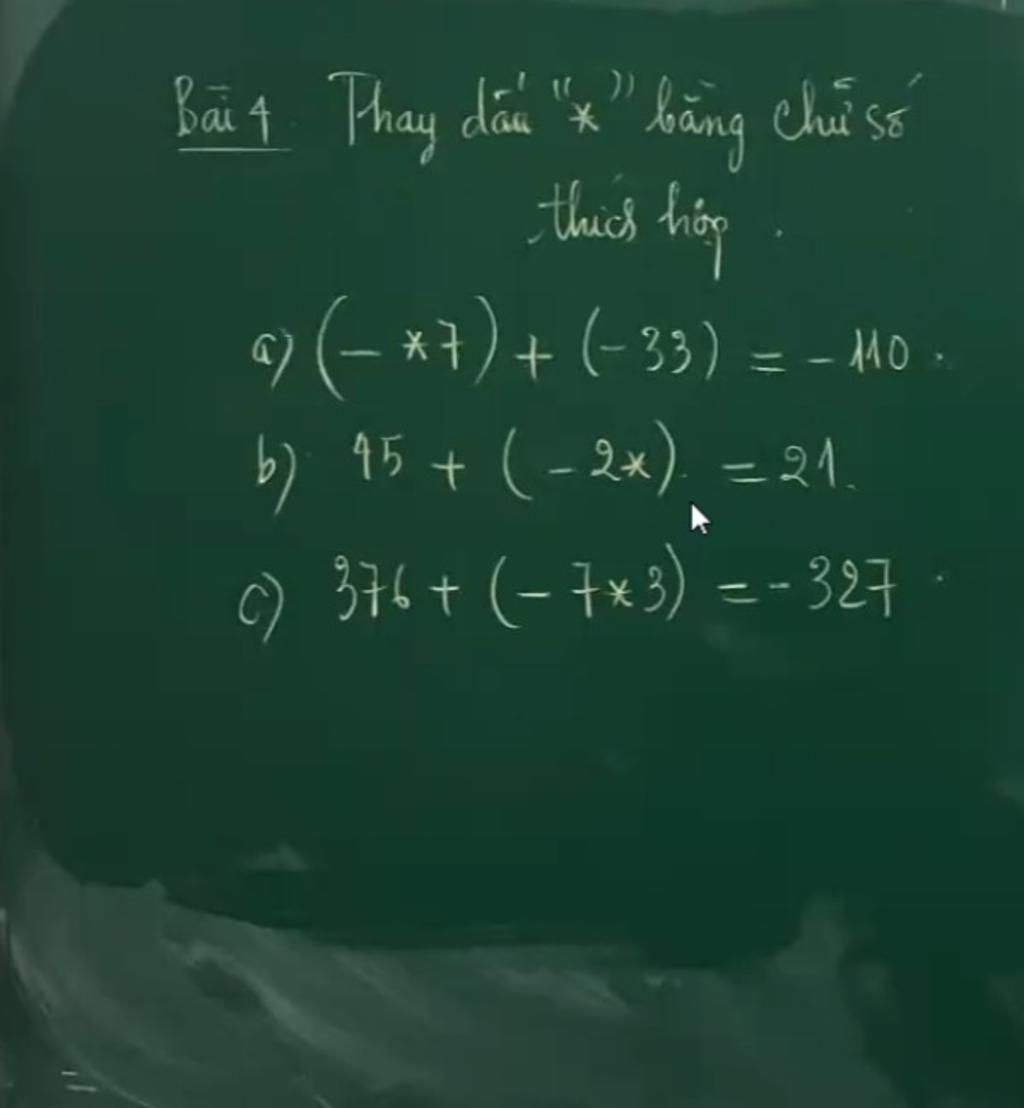 Bài 4. Thay dấu "*" bằng chữ số
thích hợp.
a) (- *7) + (-33) = - 110.
b) 45 + (-2*) = 21.
c) 376 + (- 7*3) = - 327.